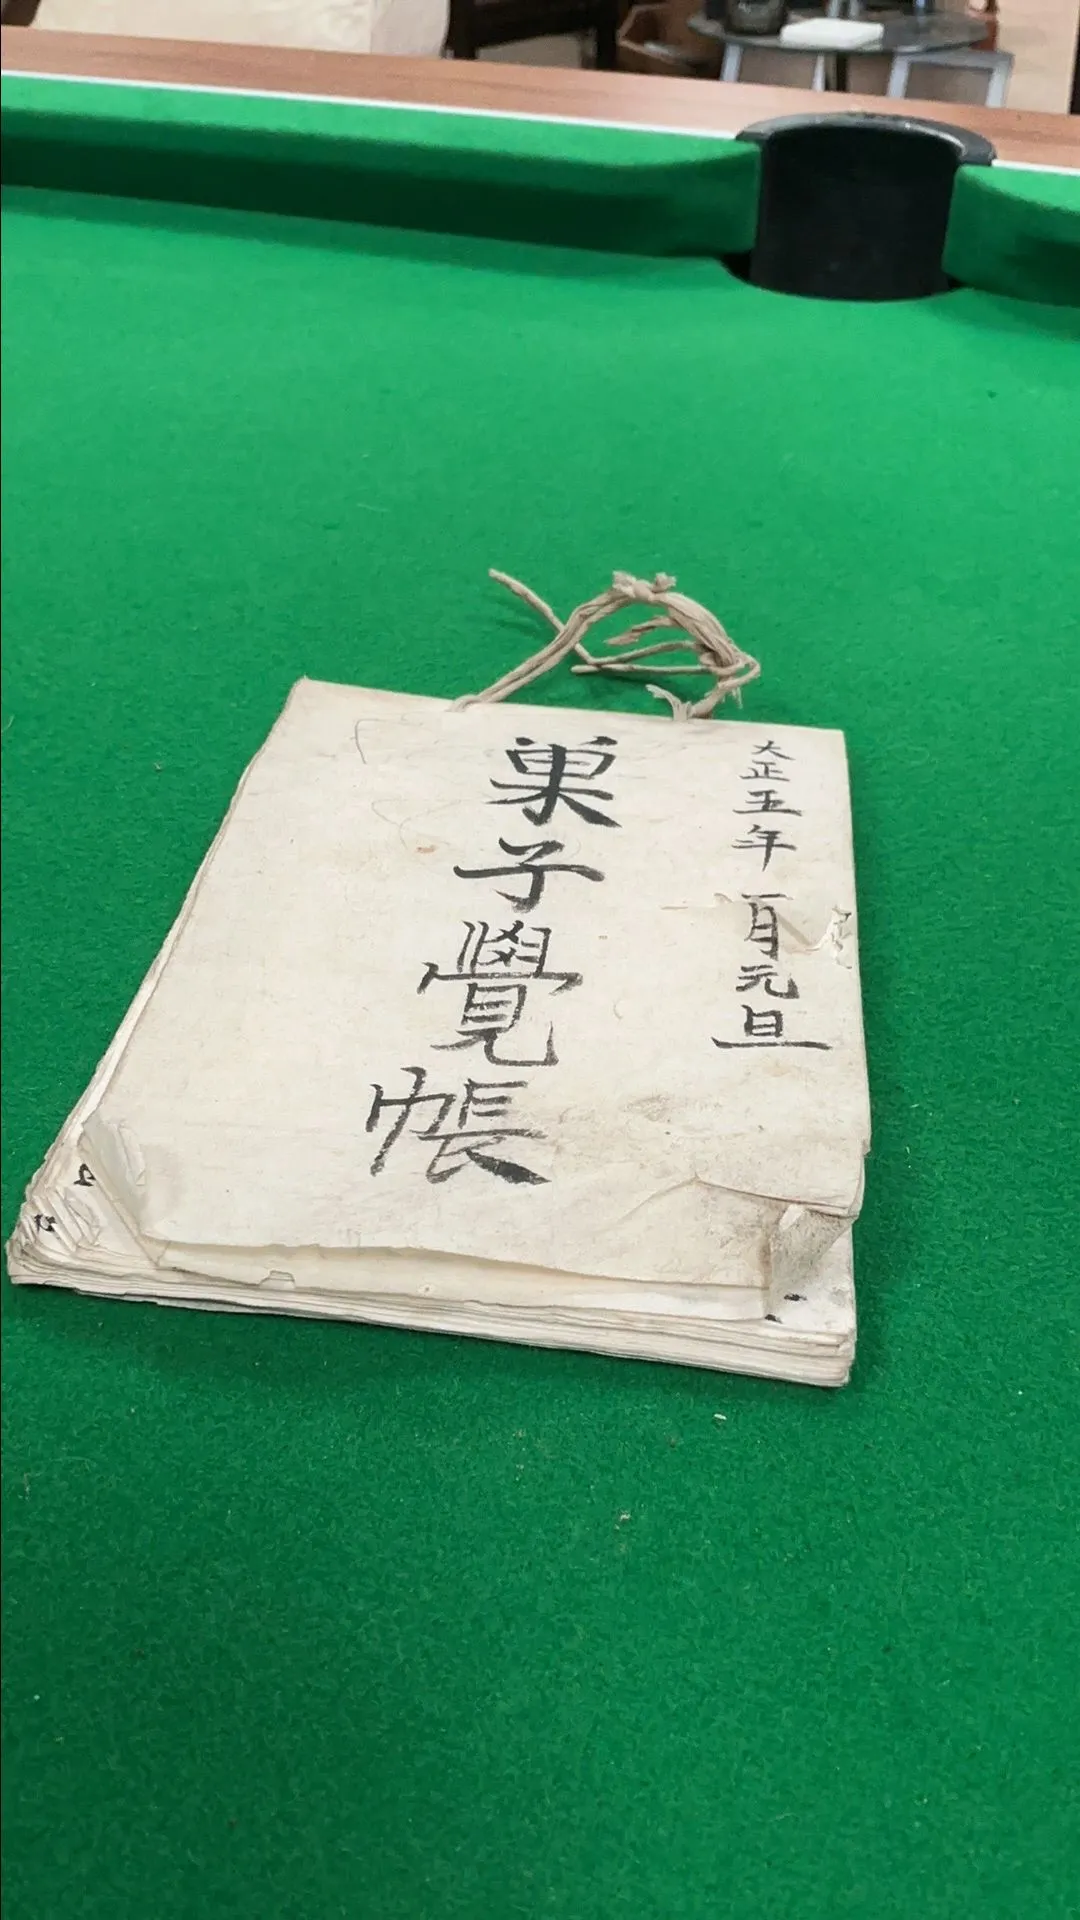 大正五年一月元旦
菓子覺帳